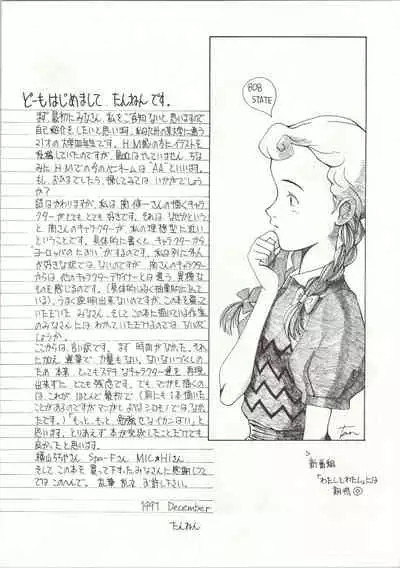 どーもはじめまして たんねん です。
まず、最初にみなさん、私をご存知ないと思いますので
自己紹介をしたいと思います。
21才の大学四年生です。H・M誌の方にイラストを
投稿していたのですが、最近はやっていません。ちな
みに H・Mでの今のペンネームは "AA" といいます。
もし、おひまでしたら、捜してみては いかがでしょ
うか?
話はかわりますが、私は 関 修一さんの描くキャラ
クターがとても とても 好きです。それは、なぜかという
と 関さんのキャラクターが、私の理想型に近い
ということです。具体的に書くと、キャラクターから
"ヨーロッパのたましい" がするのです。私は別に外人
が好きな訳では、ないのですが 関さんのキャラクター
からは、他のキャラクターデザイナーとは違う、異様な
ものを感じるのです。(具体的じゃなく抽象的になって
いる)、うまく説明出来ないのですが、この本を買って
いただいた みなさん、そして この本に描いている作家
のみなさんには わかっていただけるのでは ないで
しょうか?
ここからは、言い訳です。まず 時間がなかった。それ
に加え 遅筆で 力量もない。ないないづくしの
ため 本来、とてもステキなキャラクター達を 再現
出来ずに とても残念です。でも、マンガを描くの
は、これが、ほとんど最初で(前にも1本描いた
ことがあるのですがマンガとしてはシロモノではな
たです。)「もっと、もっと 勉強せなイカンばい」と
思います。とりあえず 本が発刊したことだけでも
良かったと思います。
横山ちちやさん Spa-Fさん MICaHiさん
そして この本を 買って下すったみなさんに 感謝しつつ
では このへんで。乱筆 乱文 お許し下さい。
1997 December
たんねん
BOB
STATE
Tan
新番組
「わたしとわたし」には
期待